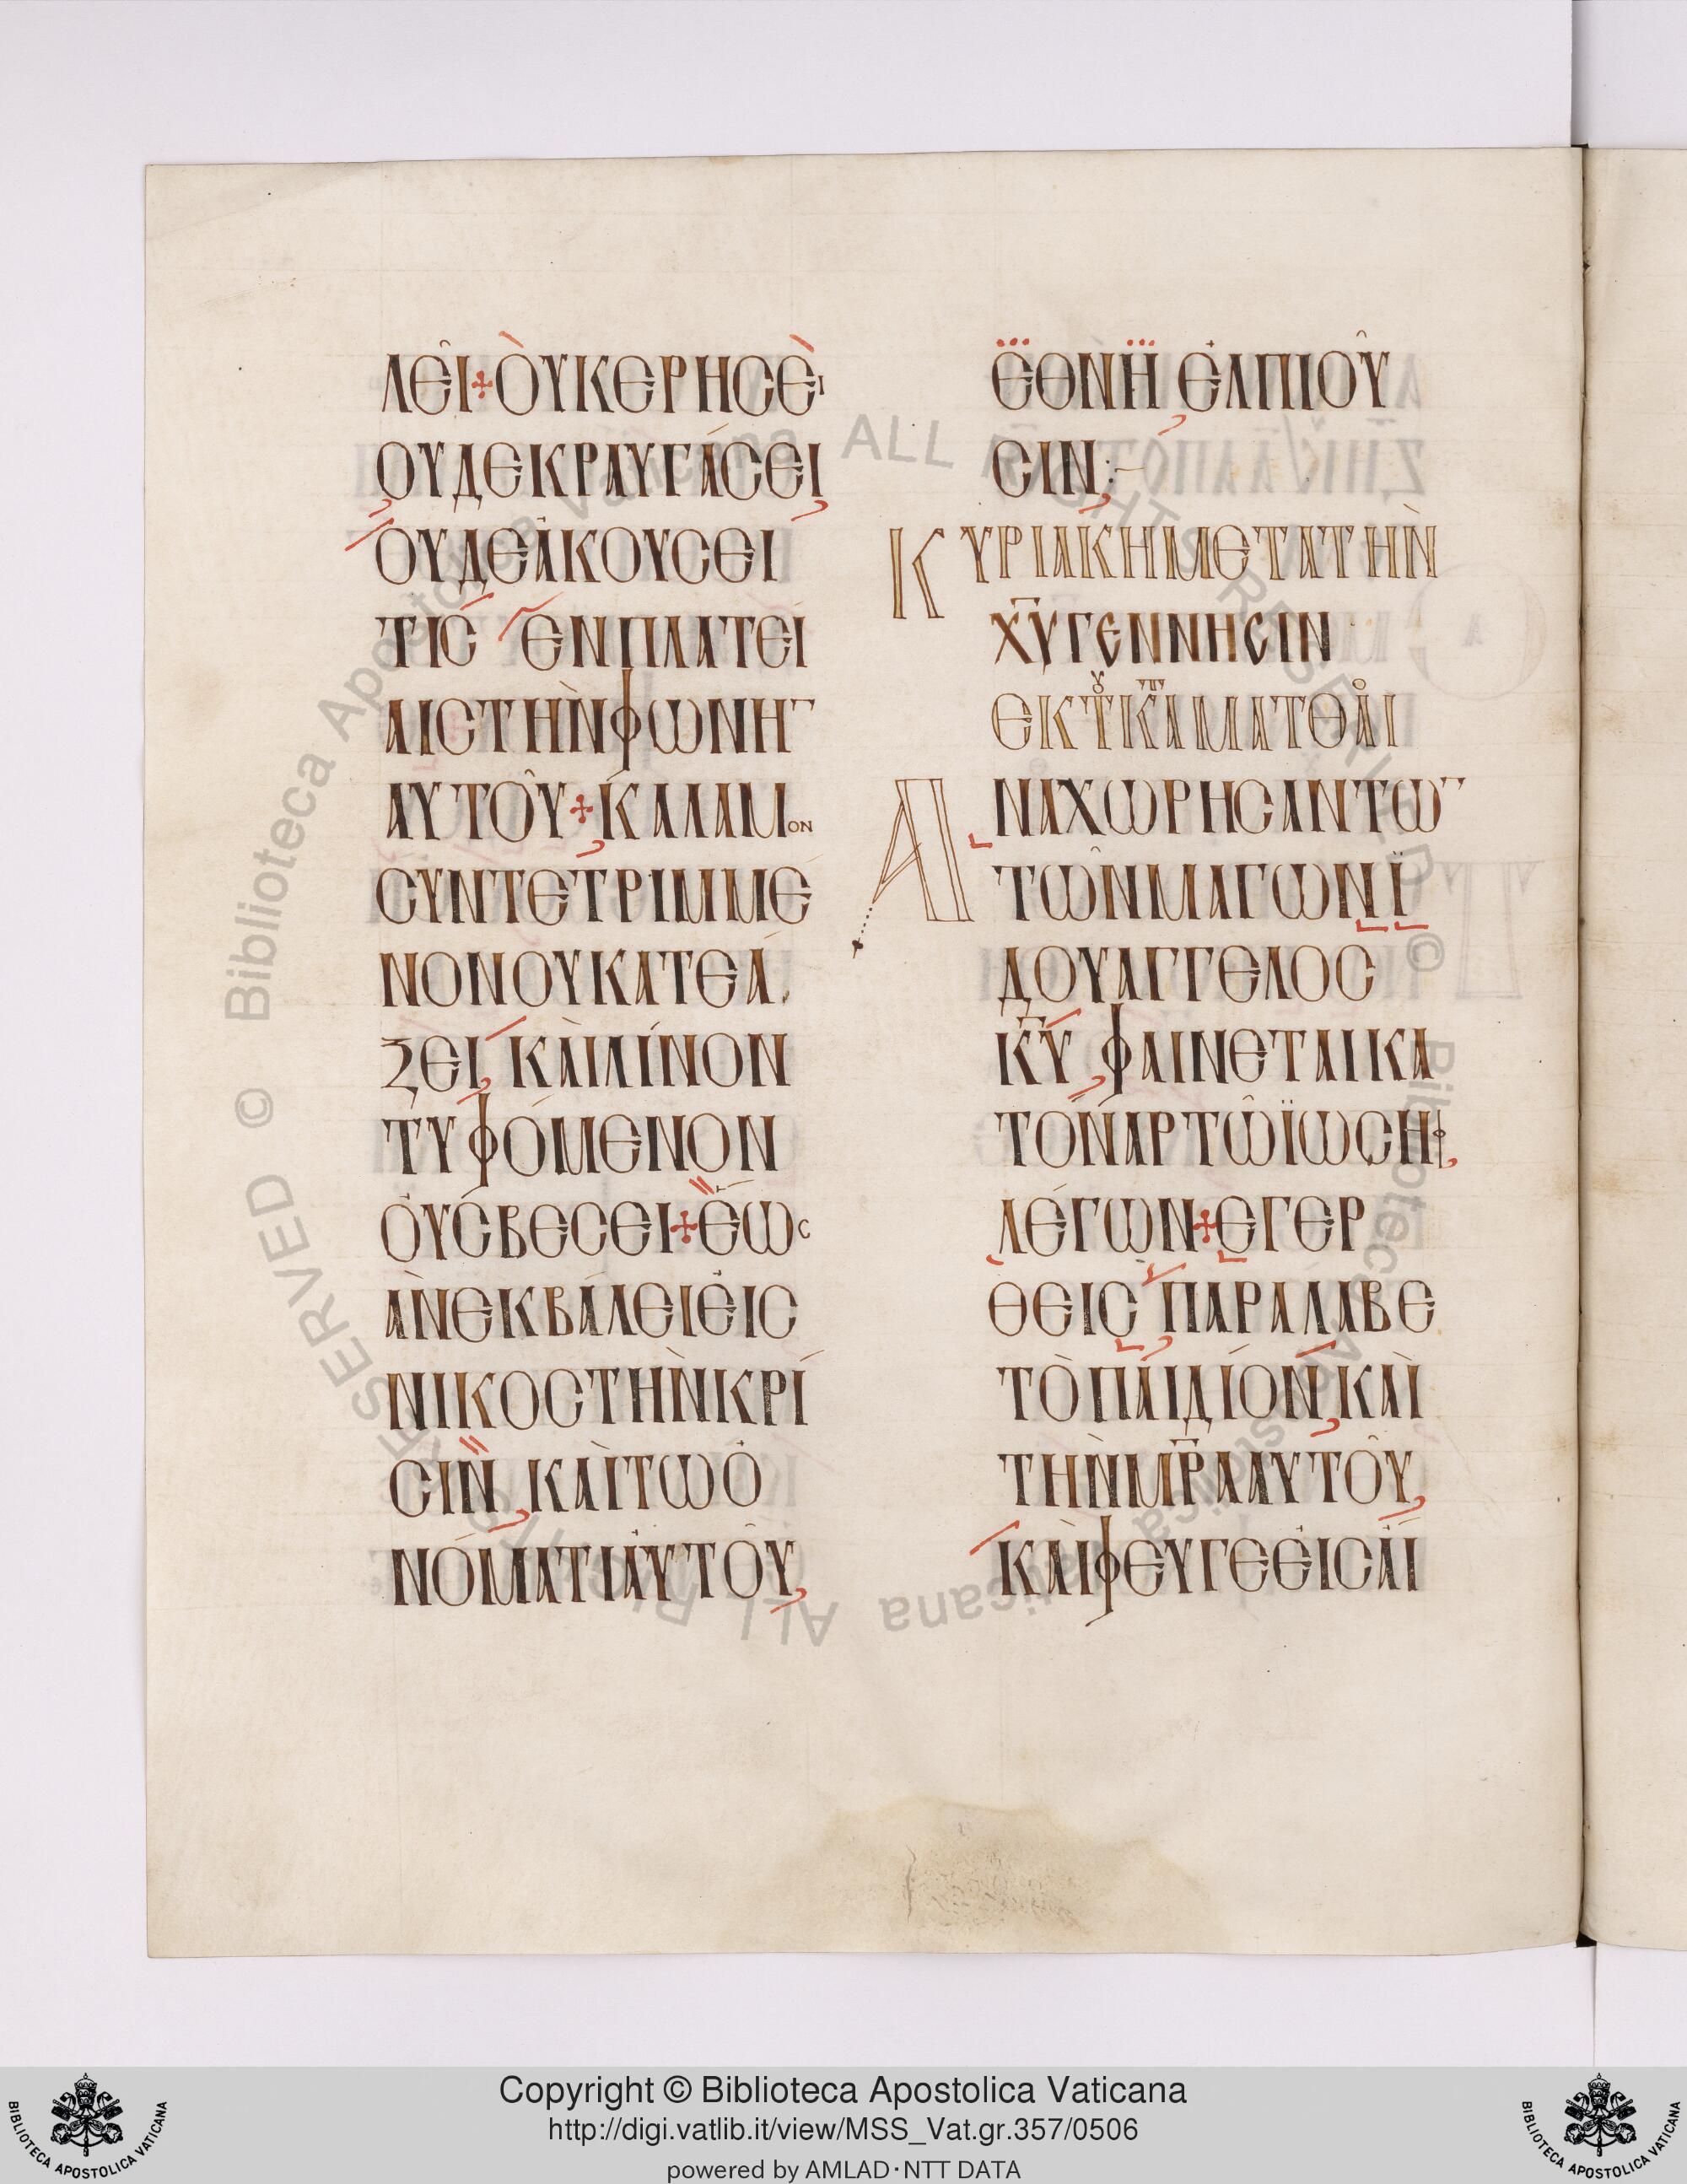 ΛΕῖ+ΟὐΚΕΡΗСΕὶ
ΟΥΔΕΚΡΑΥΓάСΕΙ,
ΟΥΔΕἀΚΟΥСΕΙ
ΤΙС ΕΝΠΛΑΤΕί
ΑΙСΤῊΝΦΩΝΗ̄
ΑΥΤΟῦ+ΚάΛΑΜΟΝ
СΥΝΤΕΤΡΙΜΜΈ
ΝΟΝΟΥΚΑΤΕά
ΞΕΙ, ΚΑὶΛίΝΟΝ
ΤΥΦόΜΕΝΟΝ
ΟὐСΒΕСΕΙ+ΕὥС
ἂΝΕΚΒάΛΕΙΕἰС
ΝΙΚΟСΤῊΝΚΡί
СΙΝ, ΚΑὶΤΩὀ
ΝόΜΑΤΙΑὐΤΟῦ,
ἔΘΝΗ, ἐΛΠΙΟῦ
СΙΝ:~
ΚΥΡΙΑΚΗΜΕΤΑΤῊΝ
Χ̅Υ̅ΓΕΝΝΗСΙΝ
ΕΚΤΟΥΚΑΤΑΜΑΤΘΑῖ
ΑΝΑΧΩΡΗСΑΝΤΩ̄
ΤῶΝΜΑΓΩΝΪ
ΔΟΥΑΓΓΕΛΟС
Κ̅Υ̅ ΦΑΙΝΕΤΑΙΚΑ
ΤΟΝΑΡΤῶΪΩСΗΦ,
ΛΕΓΩΝ+ΕΓΕΡ
ΘΕΙС ΠΑΡΑΛΑΒΕ
ΤὸΠΑΙΔίΟΝ, ΚΑὶ
ΤῊΝΜ̅Ρ̅ΑΑΥΤΟῦ,
ΚΑὶΦΕΥΓΕΕἰСΑἰ
© Biblioteca Apostolica Vaticana ALL RIGHTS RESERVED © Biblioteca Apostolica Vaticana ALL RIGHTS RESERVED
Copyright © Biblioteca Apostolica Vaticana
http://digi.vatlib.it/view/MSS_Vat.gr.357/0506
powered by AMLAD·NTT DATA
BIBLIOTECA APOSTOLICA VATICANA
BIBLIOTECA APOSTOLICA VATICANA